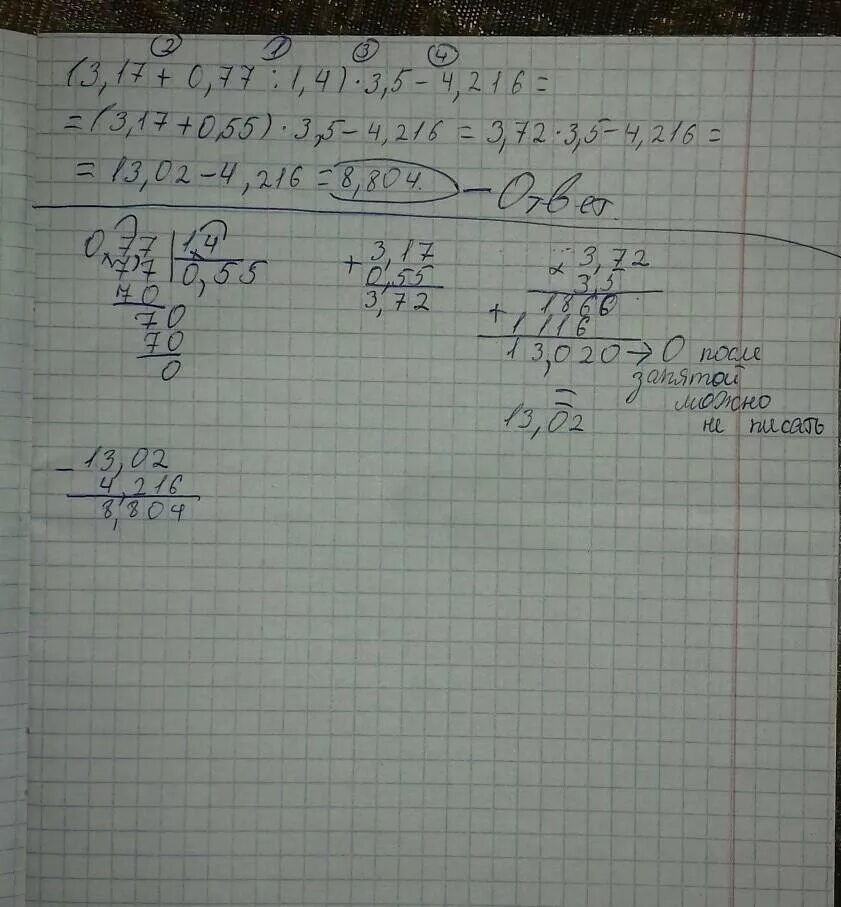 ② ① ③ ④
(3,17 + 0,77 : 1,4) · 3,5 - 4,216 =
= (3,17 + 0,55) · 3,5 - 4,216 = 3,72 · 3,5 - 4,216 =
= 13,02 - 4,216 = 8,804. — Ответ.
0,77 | 1,4
7,7 | 0,55
70
70
70
0
+ 3,17
0,55
3,72
× 3,72
3,5
+ 1860
1116
13,020 → 0 после
запятой
можно
не писать
=
13,02
- 13,02
4,216
8,804